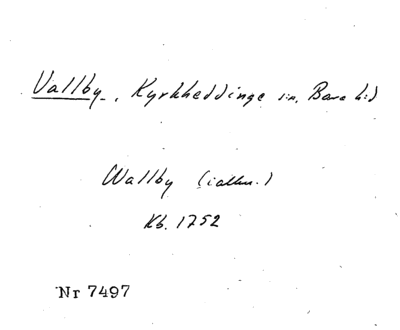 Vallby, Kyrkheddinge sn, Bara hd
Wallby (iallm.)
Kb. 1752
Nr 7497